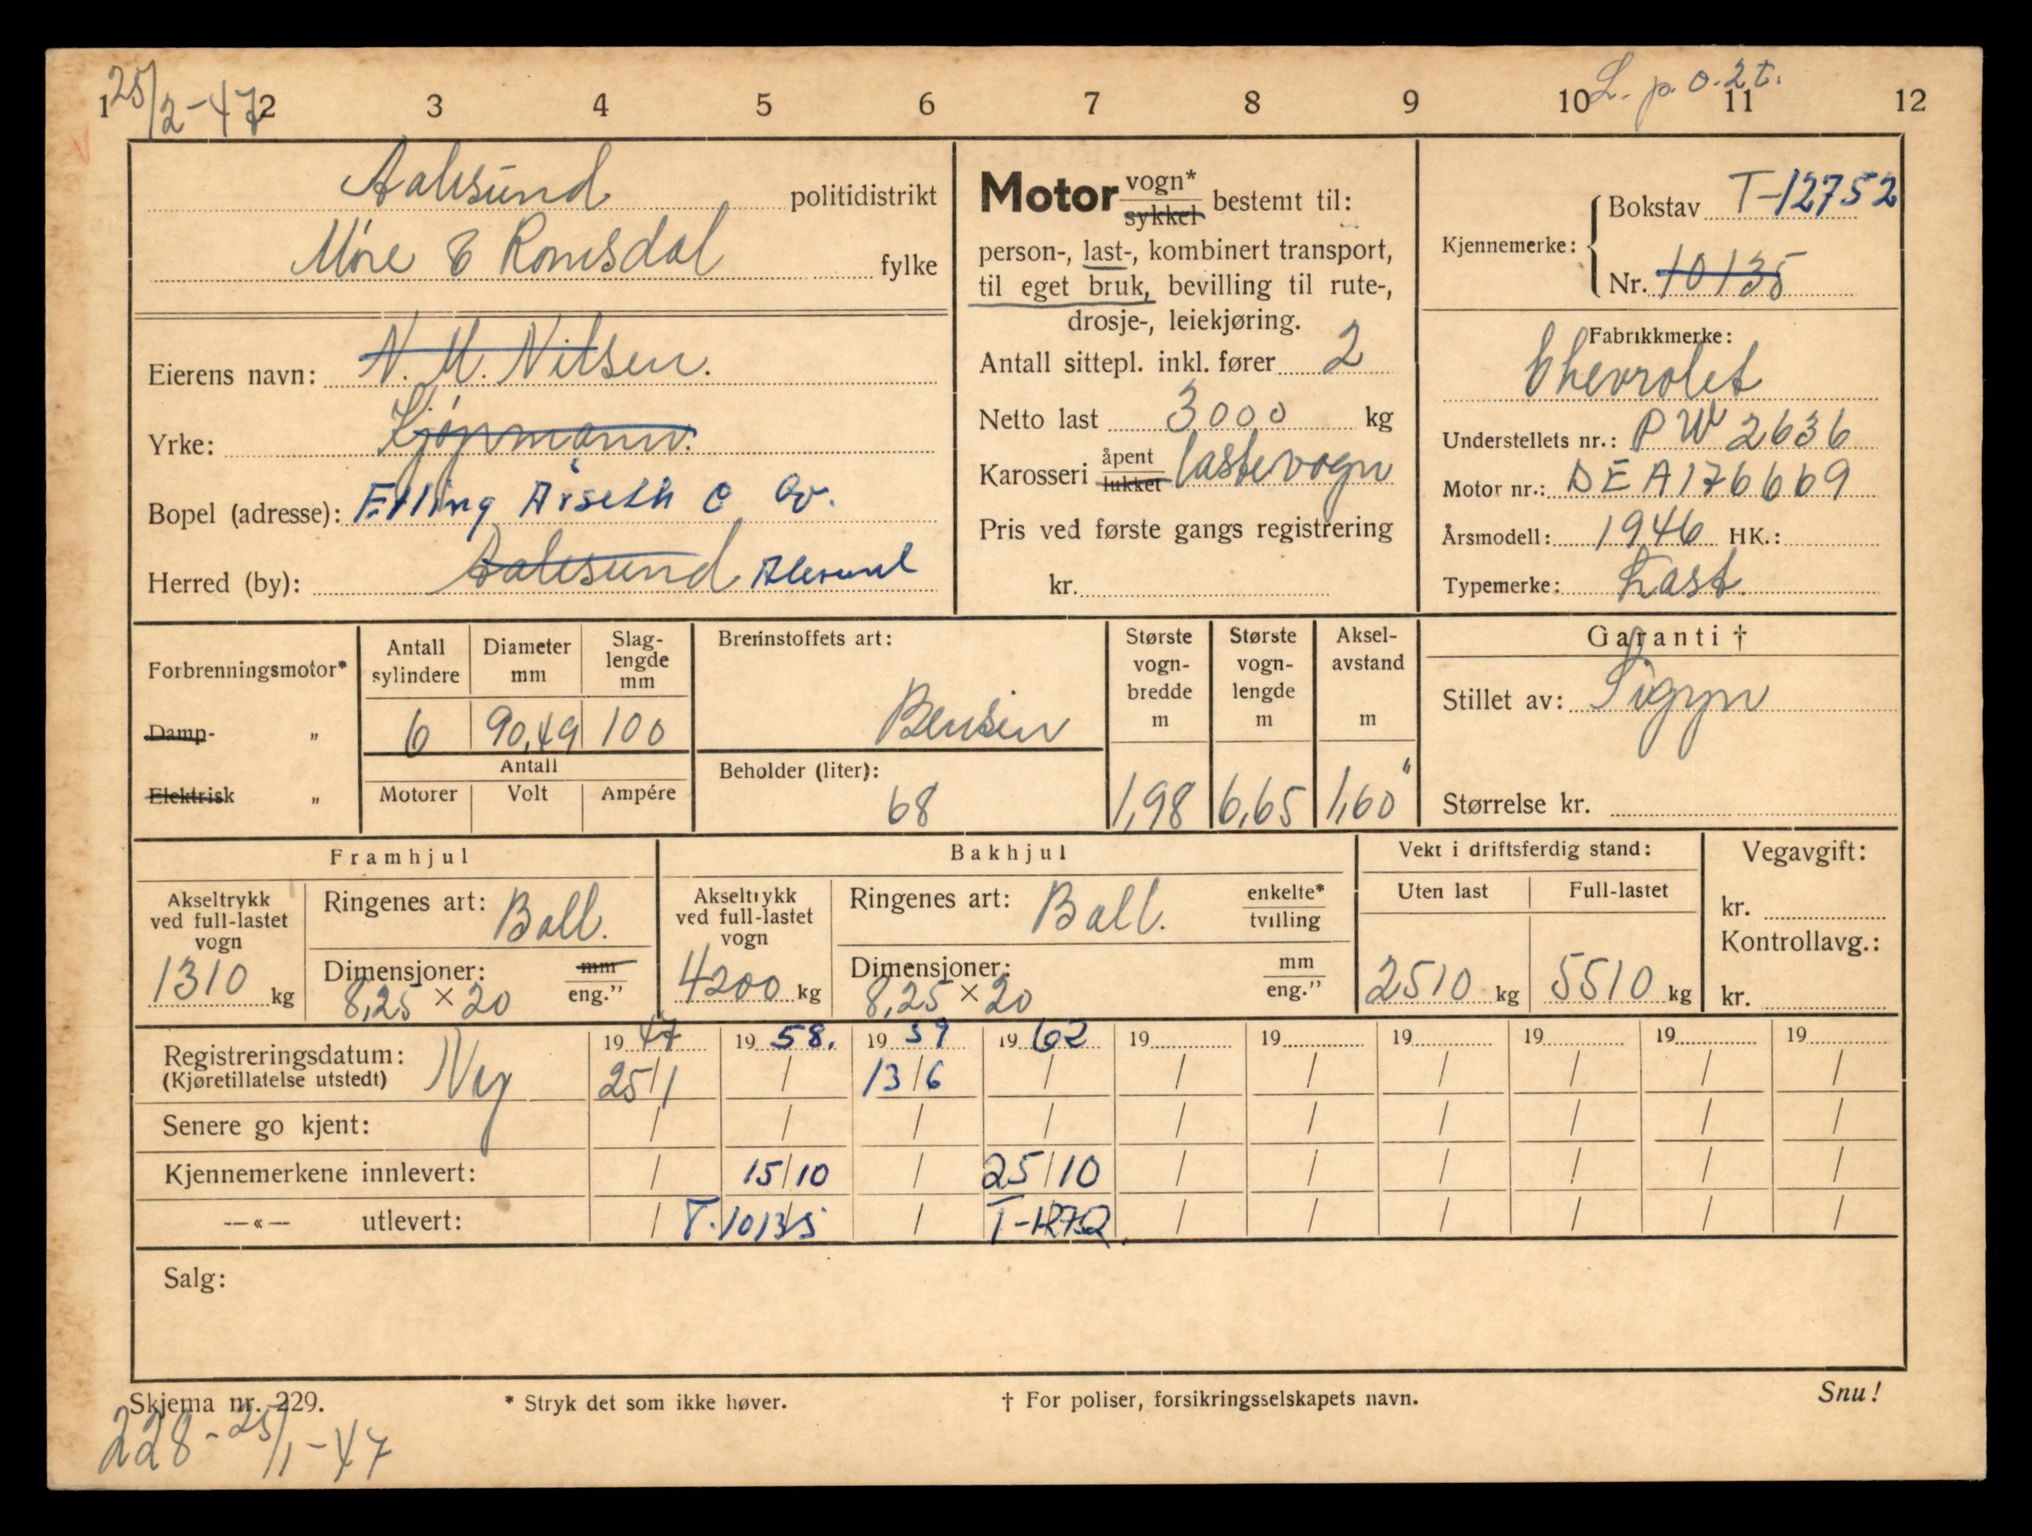 25/2-47
L. p. o. 2 t.
1 2 3 4 5 6 7 8 9 10 11 12
Aalesund politidistrikt
Møre & Romsdal fylke
Eierens navn: N. M. Nilsen.
Yrke: Kjøpmann.
Bopel (adresse): Erling Årseth & Co.
Herred (by): Aalesund Ålesund
Motor vogn* sykkel bestemt til:
person-, last-, kombinert transport,
til eget bruk, bevilling til rute-,
drosje-, leiekjøring.
Antall sittepl. inkl. fører 2
Netto last 3000 kg
Karosseri åpent lukket lastevogn
Pris ved første gangs registrering
kr.
Kjennemerke: Bokstav T-12752
Nr. 10135
Fabrikkmerke:
Chevrolet
Understellets nr.: PW 2636
Motor nr.: DEA176669
Årsmodell: 1946 HK.:
Typemerke: Last.
Forbrenningsmotor*
Damp- „
Elektrisk „
Antall sylindere 6
Diameter mm 90,49
Slaglengde mm 100
Antall
Motorer Volt Ampére
Brennstoffets art:
Bensin
Beholder (liter):
68
Største vognbredde m 1,98
Største vognlengde m 6,65
Akselavstand m 1,60"
Garanti †
Stillet av: Sigyn
Størrelse kr.
Framhjul
Akseltrykk ved full-lastet vogn
1310 kg
Ringenes art: Ball.
Dimensjoner: mm eng."
8,25 × 20
Bakhjul
Akseltrykk ved full-lastet vogn
4200 kg
Ringenes art: Ball. enkelte* tvilling
Dimensjoner: mm eng."
8,25 × 20
Vekt i driftsferdig stand:
Uten last Full-lastet
2510 kg 5510 kg
Vegavgift:
kr.
Kontrollavg.:
kr.
1947 1958. 1959 1962 19 19 19 19 19 19
Registreringsdatum: Ny 25/1 / 13/6 / / / / / / /
(Kjøretillatelse utstedt)
Senere go kjent: / / / / / / / / / /
Kjennemerkene innlevert: / 15/10 / 25/10 / / / / / /
—«— utlevert: / T-10135 / T-12752. / / / / / /
Salg:
Skjema nr. 229.
* Stryk det som ikke høver.
† For poliser, forsikringsselskapets navn.
Snu!
228-25/1-47